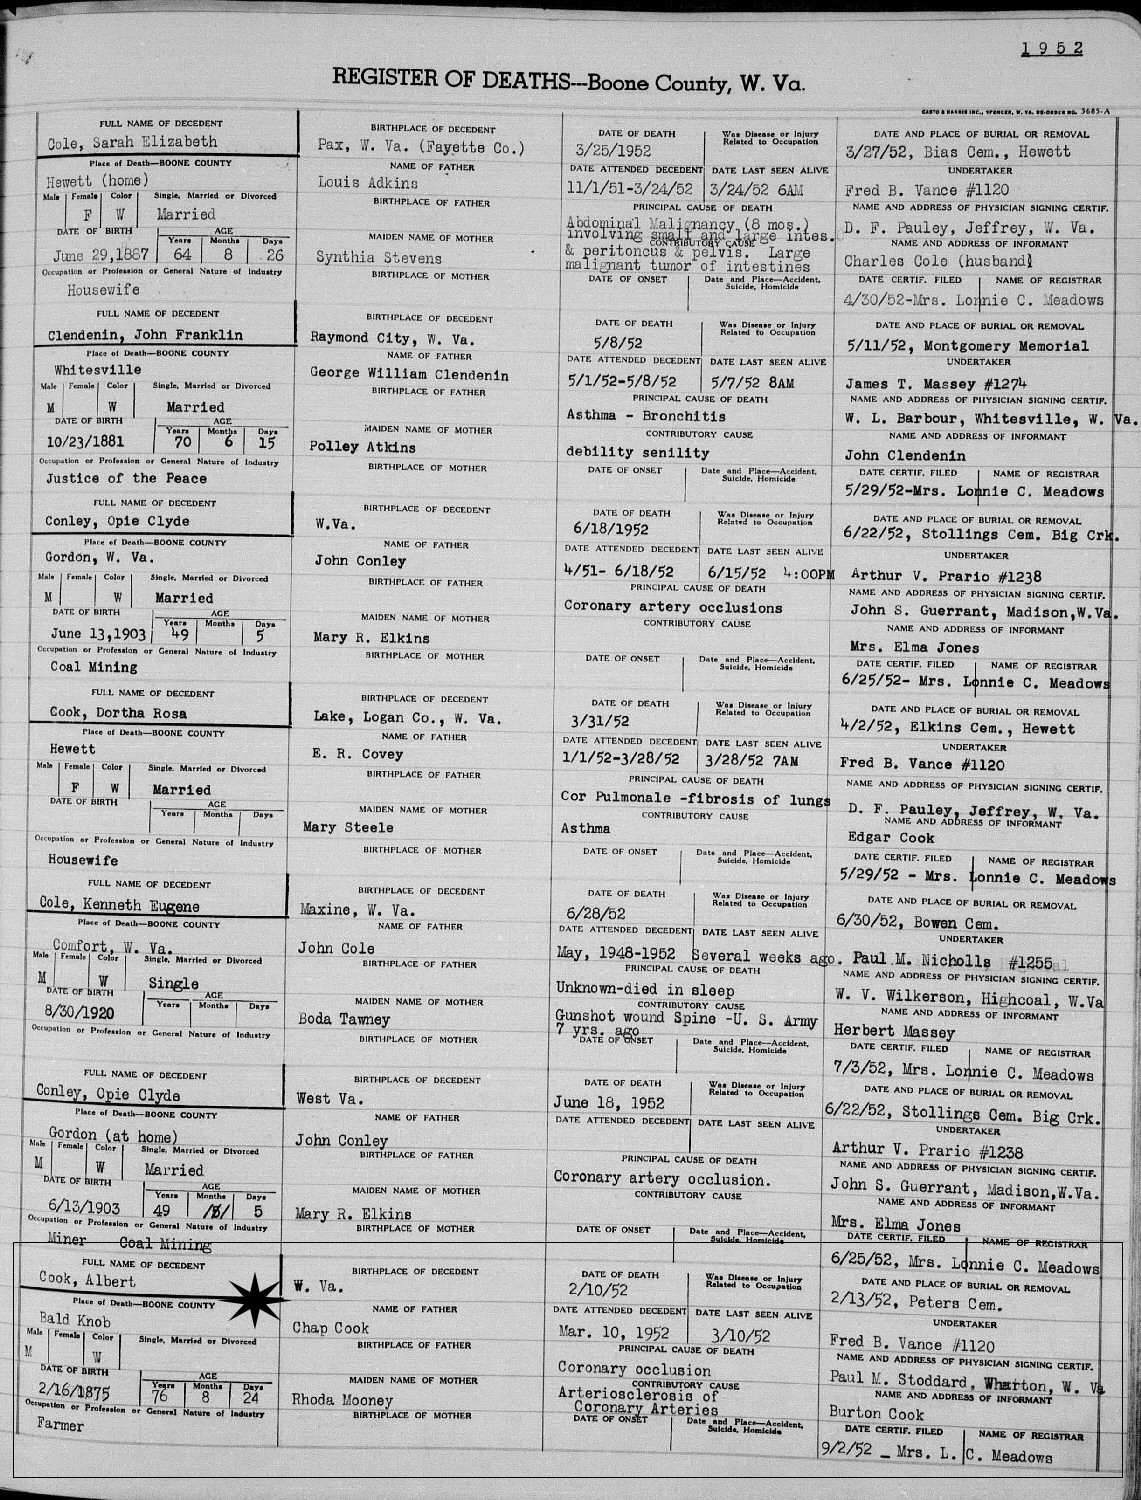 1952
REGISTER OF DEATHS---Boone County, W. Va.
CASTO & HARRIS INC., SPENCER, W. VA. RE-ORDER NO. 3685-A
FULL NAME OF DECEDENT
Cole, Sarah Elizabeth
Place of Death—BOONE COUNTY
Hewett (home)
Male Female Color Single, Married or Divorced
F W Married
DATE OF BIRTH AGE
Years Months Days
June 29,1887 64 8 26
Occupation or Profession or General Nature of Industry
Housewife
BIRTHPLACE OF DECEDENT
Pax, W. Va. (Fayette Co.)
NAME OF FATHER
Louis Adkins
BIRTHPLACE OF FATHER
MAIDEN NAME OF MOTHER
Synthia Stevens
BIRTHPLACE OF MOTHER
DATE OF DEATH Was Disease or Injury Related to Occupation
3/25/1952
DATE ATTENDED DECEDENT DATE LAST SEEN ALIVE
11/1/51-3/24/52 3/24/52 6AM
PRINCIPAL CAUSE OF DEATH
Abdominal Malignancy (8 mos.)
involving small and large intes.
CONTRIBUTORY CAUSE
& peritoncus & pelvis. Large
malignant tumor of intestines
DATE OF ONSET Date and Place—Accident, Suicide, Homicide
DATE AND PLACE OF BURIAL OR REMOVAL
3/27/52, Bias Cem., Hewett
UNDERTAKER
Fred B. Vance #1120
NAME AND ADDRESS OF PHYSICIAN SIGNING CERTIF.
D. F. Pauley, Jeffrey, W. Va.
NAME AND ADDRESS OF INFORMANT
Charles Cole (husband)
DATE CERTIF. FILED NAME OF REGISTRAR
4/30/52-Mrs. Lonnie C. Meadows
FULL NAME OF DECEDENT
Clendenin, John Franklin
Place of Death—BOONE COUNTY
Whitesville
Male Female Color Single, Married or Divorced
M W Married
DATE OF BIRTH AGE
Years Months Days
10/23/1881 70 6 15
Occupation or Profession or General Nature of Industry
Justice of the Peace
BIRTHPLACE OF DECEDENT
Raymond City, W. Va.
NAME OF FATHER
George William Clendenin
BIRTHPLACE OF FATHER
MAIDEN NAME OF MOTHER
Polley Atkins
BIRTHPLACE OF MOTHER
DATE OF DEATH Was Disease or Injury Related to Occupation
5/8/52
DATE ATTENDED DECEDENT DATE LAST SEEN ALIVE
5/1/52-5/8/52 5/7/52 8AM
PRINCIPAL CAUSE OF DEATH
Asthma - Bronchitis
CONTRIBUTORY CAUSE
debility senility
DATE OF ONSET Date and Place—Accident, Suicide, Homicide
DATE AND PLACE OF BURIAL OR REMOVAL
5/11/52, Montgomery Memorial
UNDERTAKER
James T. Massey #1274
NAME AND ADDRESS OF PHYSICIAN SIGNING CERTIF.
W. L. Barbour, Whitesville, W. Va.
NAME AND ADDRESS OF INFORMANT
John Clendenin
DATE CERTIF. FILED NAME OF REGISTRAR
5/29/52-Mrs. Lonnie C. Meadows
FULL NAME OF DECEDENT
Conley, Opie Clyde
Place of Death—BOONE COUNTY
Gordon, W. Va.
Male Female Color Single, Married or Divorced
M W Married
DATE OF BIRTH AGE
Years Months Days
June 13,1903 49 5
Occupation or Profession or General Nature of Industry
Coal Mining
BIRTHPLACE OF DECEDENT
W.Va.
NAME OF FATHER
John Conley
BIRTHPLACE OF FATHER
MAIDEN NAME OF MOTHER
Mary R. Elkins
BIRTHPLACE OF MOTHER
DATE OF DEATH Was Disease or Injury Related to Occupation
6/18/1952
DATE ATTENDED DECEDENT DATE LAST SEEN ALIVE
4/51- 6/18/52 6/15/52 4:00PM
PRINCIPAL CAUSE OF DEATH
Coronary artery occlusions
CONTRIBUTORY CAUSE
DATE OF ONSET Date and Place—Accident, Suicide, Homicide
DATE AND PLACE OF BURIAL OR REMOVAL
6/22/52, Stollings Cem. Big Crk.
UNDERTAKER
Arthur V. Prario #1238
NAME AND ADDRESS OF PHYSICIAN SIGNING CERTIF.
John S. Guerrant, Madison,W.Va.
NAME AND ADDRESS OF INFORMANT
Mrs. Elma Jones
DATE CERTIF. FILED NAME OF REGISTRAR
6/25/52- Mrs. Lonnie C. Meadows
FULL NAME OF DECEDENT
Cook, Dortha Rosa
Place of Death—BOONE COUNTY
Hewett
Male Female Color Single, Married or Divorced
F W Married
DATE OF BIRTH AGE
Years Months Days
Occupation or Profession or General Nature of Industry
Housewife
BIRTHPLACE OF DECEDENT
Lake, Logan Co., W. Va.
NAME OF FATHER
E. R. Covey
BIRTHPLACE OF FATHER
MAIDEN NAME OF MOTHER
Mary Steele
BIRTHPLACE OF MOTHER
DATE OF DEATH Was Disease or Injury Related to Occupation
3/31/52
DATE ATTENDED DECEDENT DATE LAST SEEN ALIVE
1/1/52-3/28/52 3/28/52 7AM
PRINCIPAL CAUSE OF DEATH
Cor Pulmonale -fibrosis of lungs
CONTRIBUTORY CAUSE
Asthma
DATE OF ONSET Date and Place—Accident, Suicide, Homicide
DATE AND PLACE OF BURIAL OR REMOVAL
4/2/52, Elkins Cem., Hewett
UNDERTAKER
Fred B. Vance #1120
NAME AND ADDRESS OF PHYSICIAN SIGNING CERTIF.
D. F. Pauley, Jeffrey, W. Va.
NAME AND ADDRESS OF INFORMANT
Edgar Cook
DATE CERTIF. FILED NAME OF REGISTRAR
5/29/52 - Mrs. Lonnie C. Meadows
FULL NAME OF DECEDENT
Cole, Kenneth Eugene
Place of Death—BOONE COUNTY
Comfort, W. Va.
Male Female Color Single, Married or Divorced
M W Single
DATE OF BIRTH AGE
Years Months Days
8/30/1920
Occupation or Profession or General Nature of Industry
BIRTHPLACE OF DECEDENT
Maxine, W. Va.
NAME OF FATHER
John Cole
BIRTHPLACE OF FATHER
MAIDEN NAME OF MOTHER
Boda Tawney
BIRTHPLACE OF MOTHER
DATE OF DEATH Was Disease or Injury Related to Occupation
6/28/52
DATE ATTENDED DECEDENT DATE LAST SEEN ALIVE
May, 1948-1952 Several weeks ago.
PRINCIPAL CAUSE OF DEATH
Unknown-died in sleep
CONTRIBUTORY CAUSE
Gunshot wound Spine -U. S. Army
7 yrs. ago
DATE OF ONSET Date and Place—Accident, Suicide, Homicide
DATE AND PLACE OF BURIAL OR REMOVAL
6/30/52, Bowen Cem.
UNDERTAKER
Paul M. Nicholls #1255
NAME AND ADDRESS OF PHYSICIAN SIGNING CERTIF.
W. V. Wilkerson, Highcoal, W.Va
NAME AND ADDRESS OF INFORMANT
Herbert Massey
DATE CERTIF. FILED NAME OF REGISTRAR
7/3/52, Mrs. Lonnie C. Meadows
FULL NAME OF DECEDENT
Conley, Opie Clyde
Place of Death—BOONE COUNTY
Gordon (at home)
Male Female Color Single, Married or Divorced
M W Married
DATE OF BIRTH AGE
Years Months Days
6/13/1903 49 /5/ 5
Occupation or Profession or General Nature of Industry
Miner Coal Mining
BIRTHPLACE OF DECEDENT
West Va.
NAME OF FATHER
John Conley
BIRTHPLACE OF FATHER
MAIDEN NAME OF MOTHER
Mary R. Elkins
BIRTHPLACE OF MOTHER
DATE OF DEATH Was Disease or Injury Related to Occupation
June 18, 1952
DATE ATTENDED DECEDENT DATE LAST SEEN ALIVE
PRINCIPAL CAUSE OF DEATH
Coronary artery occlusion.
CONTRIBUTORY CAUSE
DATE OF ONSET Date and Place—Accident, Suicide, Homicide
DATE AND PLACE OF BURIAL OR REMOVAL
6/22/52, Stollings Cem. Big Crk.
UNDERTAKER
Arthur V. Prario #1238
NAME AND ADDRESS OF PHYSICIAN SIGNING CERTIF.
John S. Guerrant, Madison,W.Va.
NAME AND ADDRESS OF INFORMANT
Mrs. Elma Jones
DATE CERTIF. FILED NAME OF REGISTRAR
6/25/52, Mrs. Lonnie C. Meadows
FULL NAME OF DECEDENT
Cook, Albert
Place of Death—BOONE COUNTY
Bald Knob
Male Female Color Single, Married or Divorced
M W
DATE OF BIRTH AGE
Years Months Days
2/16/1875 76 8 24
Occupation or Profession or General Nature of Industry
Farmer
BIRTHPLACE OF DECEDENT
W. Va.
NAME OF FATHER
Chap Cook
BIRTHPLACE OF FATHER
MAIDEN NAME OF MOTHER
Rhoda Mooney
BIRTHPLACE OF MOTHER
DATE OF DEATH Was Disease or Injury Related to Occupation
2/10/52
DATE ATTENDED DECEDENT DATE LAST SEEN ALIVE
Mar. 10, 1952 3/10/52
PRINCIPAL CAUSE OF DEATH
Coronary occlusion
CONTRIBUTORY CAUSE
Arteriosclerosis of
Coronary Arteries
DATE OF ONSET Date and Place—Accident, Suicide, Homicide
DATE AND PLACE OF BURIAL OR REMOVAL
2/13/52, Peters Cem.
UNDERTAKER
Fred B. Vance #1120
NAME AND ADDRESS OF PHYSICIAN SIGNING CERTIF.
Paul M. Stoddard, Wharton, W. Va
NAME AND ADDRESS OF INFORMANT
Burton Cook
DATE CERTIF. FILED NAME OF REGISTRAR
9/2/52 _ Mrs. L. C. Meadows